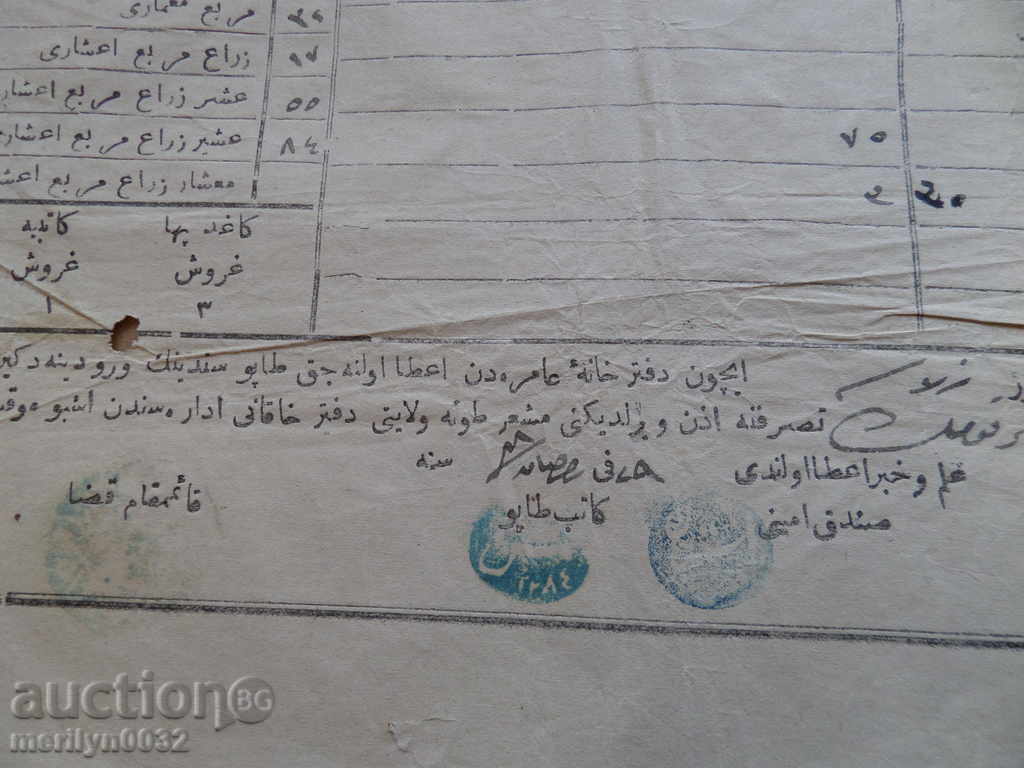 مربع معماری ٣٩
زراع مربع اعشاری ٩٧
عشر زراع مربع اعشار ٥٥
عشیر زراع مربع اعشار ٨٤
٧٥
معشار زراع مربع اعش
٢ ٢٠
كاغد بها كاتبیه
غروش غروش
٣ ١
ایچون دفتر خانۀ عامره دن اعطا اولنه جق طاپو سندینك ورودینه دكین
تصرفنه اذن ویرلدیكنی مشعر طونه ولایتی دفتر خاقانی اداره سندن اشبو موقت
علم و خبر اعطا اولندی فی سنه
صندق امینی كاتب طاپو قائممقام قضا
١٢٨٤
auctionBG
merilyn0032